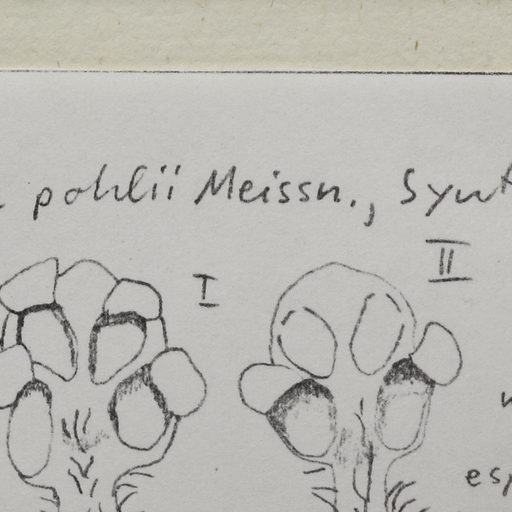 pohlii Meissn., Synt
I
II
esp